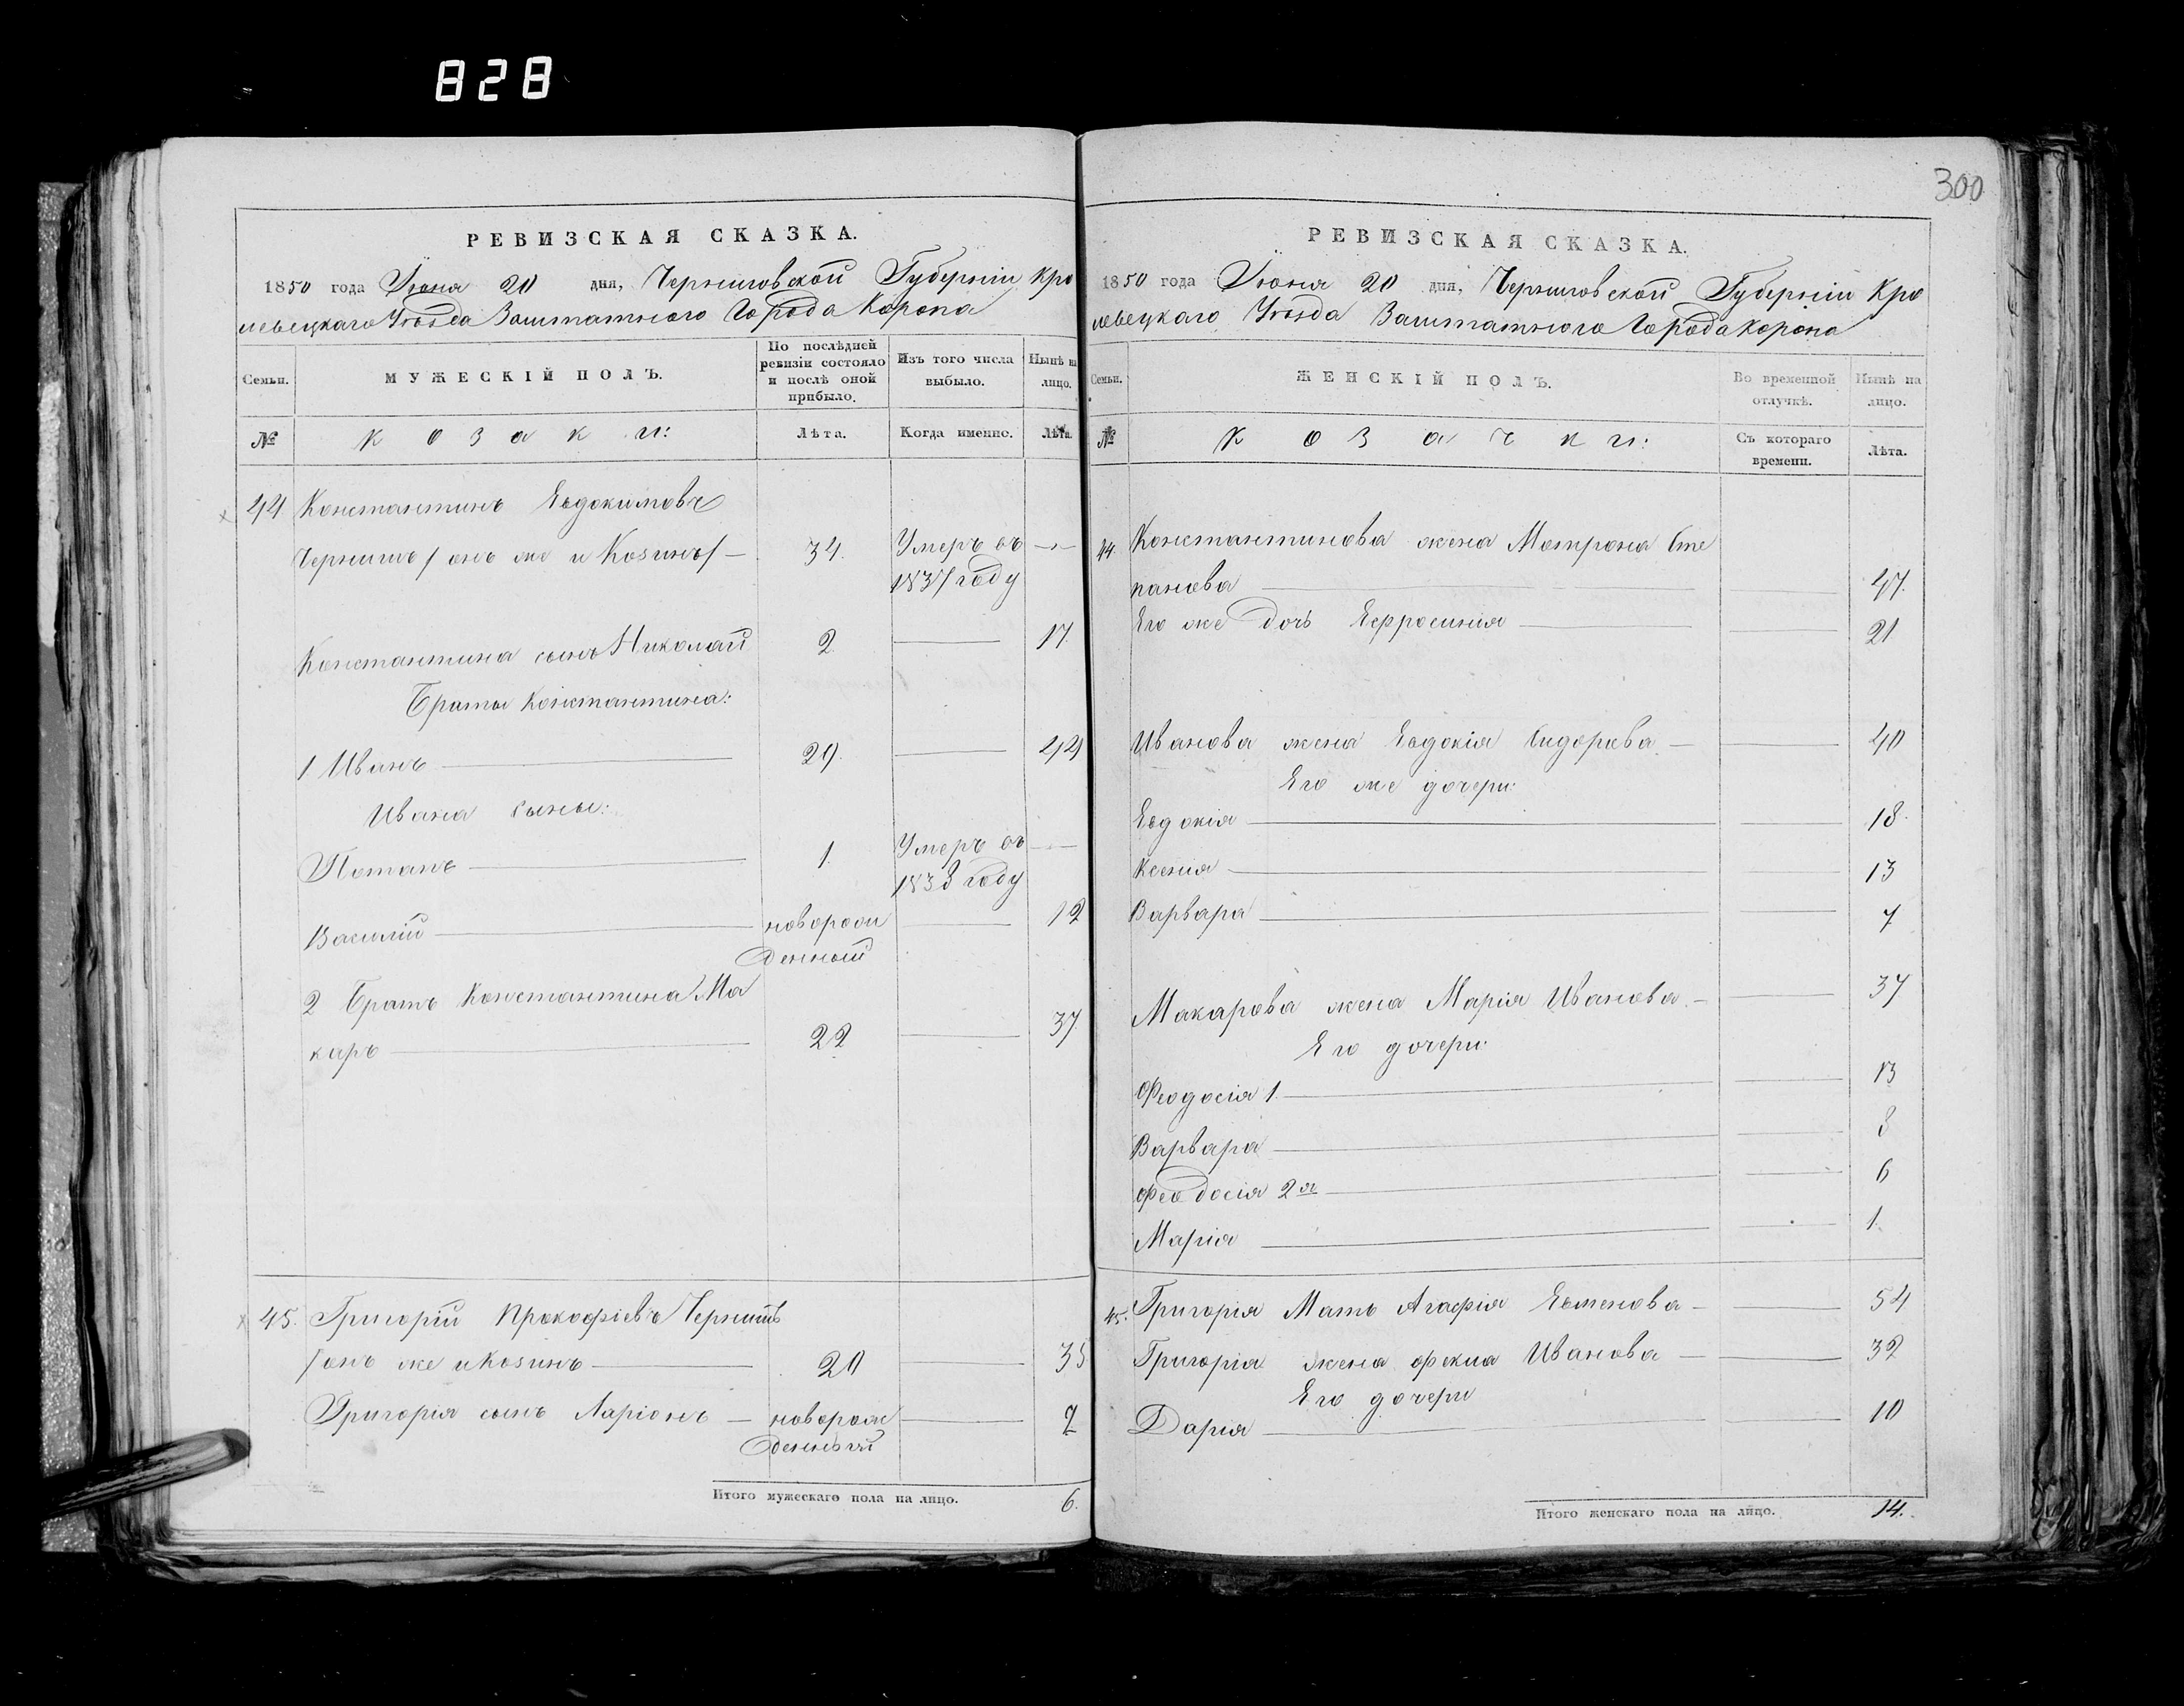 828
300
РЕВИЗСКАЯ СКАЗКА.
1850 года Іюня 20 дня, Черниговской Губерніи Кро
левецкаго Уѣзда Заштатного Города Коропа
Семьи.
МУЖЕСКІЙ ПОЛЪ.
По послѣдней
ревизіи состояло
и послѣ оной
прибыло.
Изъ того числа
выбыло.
Нынѣ на
лицо.
№
Козаки:
Лѣта.
Когда именно.
Лѣта.
44 Константинъ Евдокимовъ
Чернишъ / онъ же и Козинъ / — 34. Умеръ въ —
1837 году
Константина сынъ Николай 2 — 17.
Браты Константина:
1 Иванъ — 29. — 44
Ивана сыны:
Потапъ — 1. Умеръ въ —
1838 году
Василій — новорож — 12
денный
2 Братъ Константина Ма
каръ — 22 — 37.
45. Григорій Прокофіевъ Чернишъ
/ онъ же и Козинъ — 20 — 35
Григорія сынъ Ларіонъ — новорож — 2
денный
Итого мужескаго пола на лицо. 6.
РЕВИЗСКАЯ СКАЗКА.
1850 года Іюня 20 дня, Черниговской Губерніи Кро
левецкаго Уѣзда Заштатного Города Коропа
Семьи.
ЖЕНСКІЙ ПОЛЪ.
Во временной
отлучкѣ.
Нынѣ на
лицо.
№
Козачки:
Съ котораго
времени.
Лѣта.
44. Константинова жена Мотрона Сте
панова — — 47.
Его же дочь Ефросинія — — 21
Иванова жена Евдокія Сидорова — — 40
Его же дочери:
Евдокія — — 18.
Ксенія — — 13
Варвара — — 7
Макарова жена Марія Иванова — — 37
Его дочери:
Феодосія 1 — — 13
Варвара — — 8
Феодосія 2я — — 6
Марія — — 1.
45. Григорія Мать Агафія Евменова — — 54
Григорія жена Фекла Иванова — — 32
Его дочери
Дарія — — 10
Итого женскаго пола на лицо. 14.